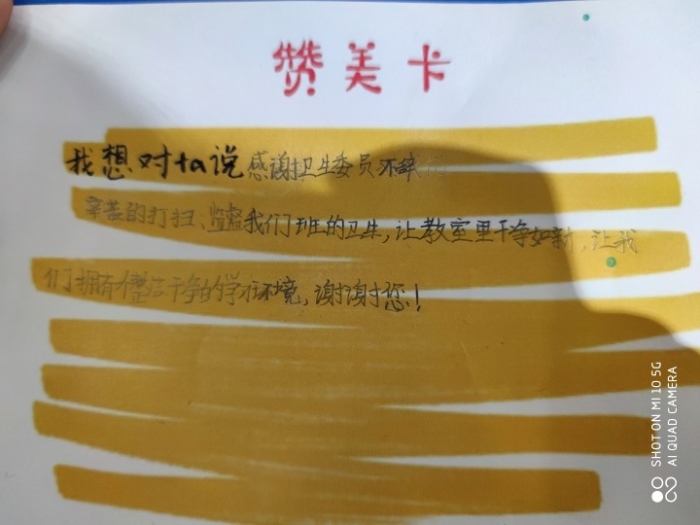 赞美卡
我想对ta说感谢卫生委员不辞
辛苦的打扫、监督我们班的卫生,让教室里干净如新,让我
们拥有个整洁干净的学习环境,谢谢您!
SHOT ON MI 10 5G
AI QUAD CAMERA